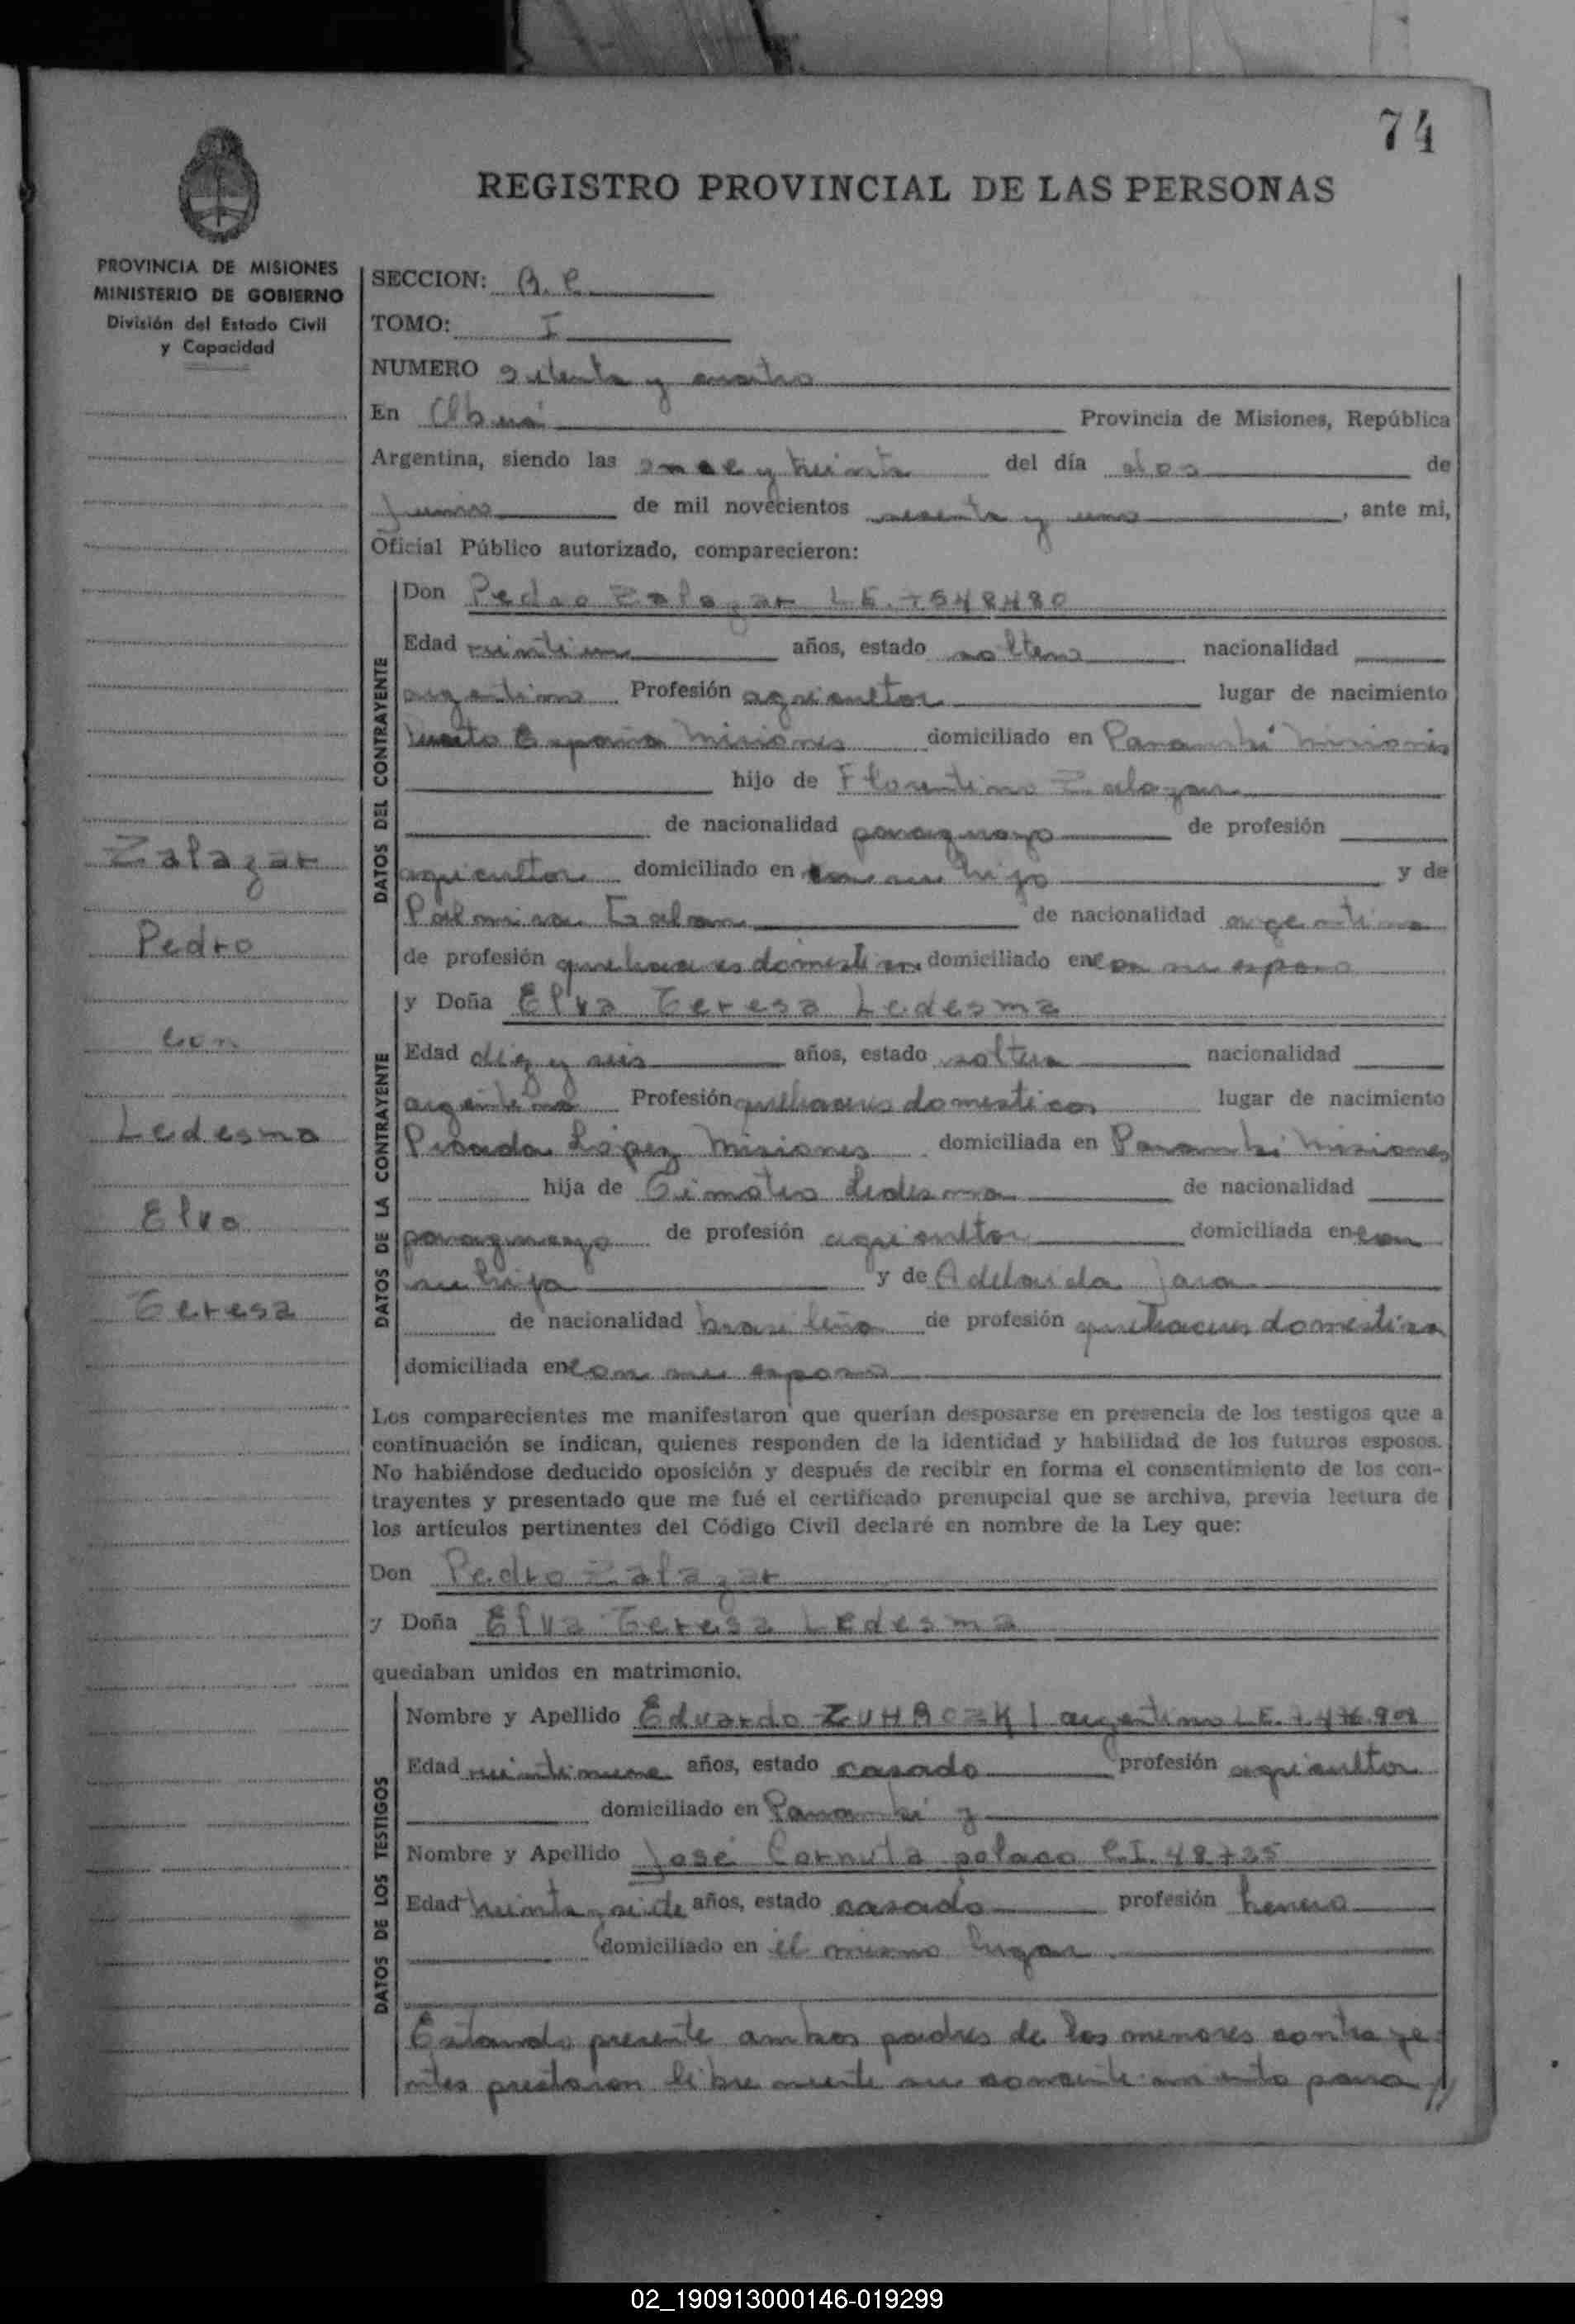 74
REGISTRO PROVINCIAL DE LAS PERSONAS
PROVINCIA DE MISIONES
MINISTERIO DE GOBIERNO
División del Estado Civil
y Capacidad
SECCION:
TOMO: I
NUMERO setenta y cuatro
En Oberá Provincia de Misiones, República
Argentina, siendo las once y treinta del día dos de
junio de mil novecientos sesenta y uno, ante mi,
Oficial Público autorizado, comparecieron:
DATOS DEL CONTRAYENTE
Don Pedro Zalazar L E. 7548480
Edad veintiun años, estado soltero nacionalidad
argentino Profesión agricultor lugar de nacimiento
Puerto España Misiones domiciliado en Panambí Misiones
hijo de Florentino Zalazar
de nacionalidad paraguayo de profesión
agricultor domiciliado en con su hijo y de
Palmira de nacionalidad argentina
de profesión quehaceres domesticos domiciliado en con su esposo
DATOS DE LA CONTRAYENTE
y Doña Elva Teresa Ledesma
Edad diez y seis años, estado soltera nacionalidad
argentina Profesión quehaceres domesticos lugar de nacimiento
Picada López Misiones domiciliada en Panambi Misiones
hija de Timoteo Ledesma de nacionalidad
paraguayo de profesión agricultor domiciliada en con
su hija y de Adelaida Jara
de nacionalidad brasileña de profesión quehaceres domesticos
domiciliada en con su esposo
Zalazar
Pedro
con
Ledesma
Elva
Teresa
Los comparecientes me manifestaron que querían desposarse en presencia de los testigos que a
continuación se indican, quienes responden de la identidad y habilidad de los futuros esposos.
No habiéndose deducido oposición y después de recibir en forma el consentimiento de los con-
trayentes y presentado que me fué el certificado prenupcial que se archiva, previa lectura de
los artículos pertinentes del Código Civil declaré en nombre de la Ley que:
Don Pedro Zalazar
y Doña Elva Teresa Ledesma
quedaban unidos en matrimonio.
DATOS DE LOS TESTIGOS
Nombre y Apellido Eduardo argentino L E.
Edad veintinueve años, estado casado profesión agricultor
domiciliado en Panambi y
Nombre y Apellido José Cornuta polaco C.I. 48725
Edad treinta y siete años, estado casado profesión herrero
domiciliado en el mismo lugar
Estando presente ambos padres de los menores contraye-
ntes prestaron libremente su consentimiento para //
02_190913000146-019299